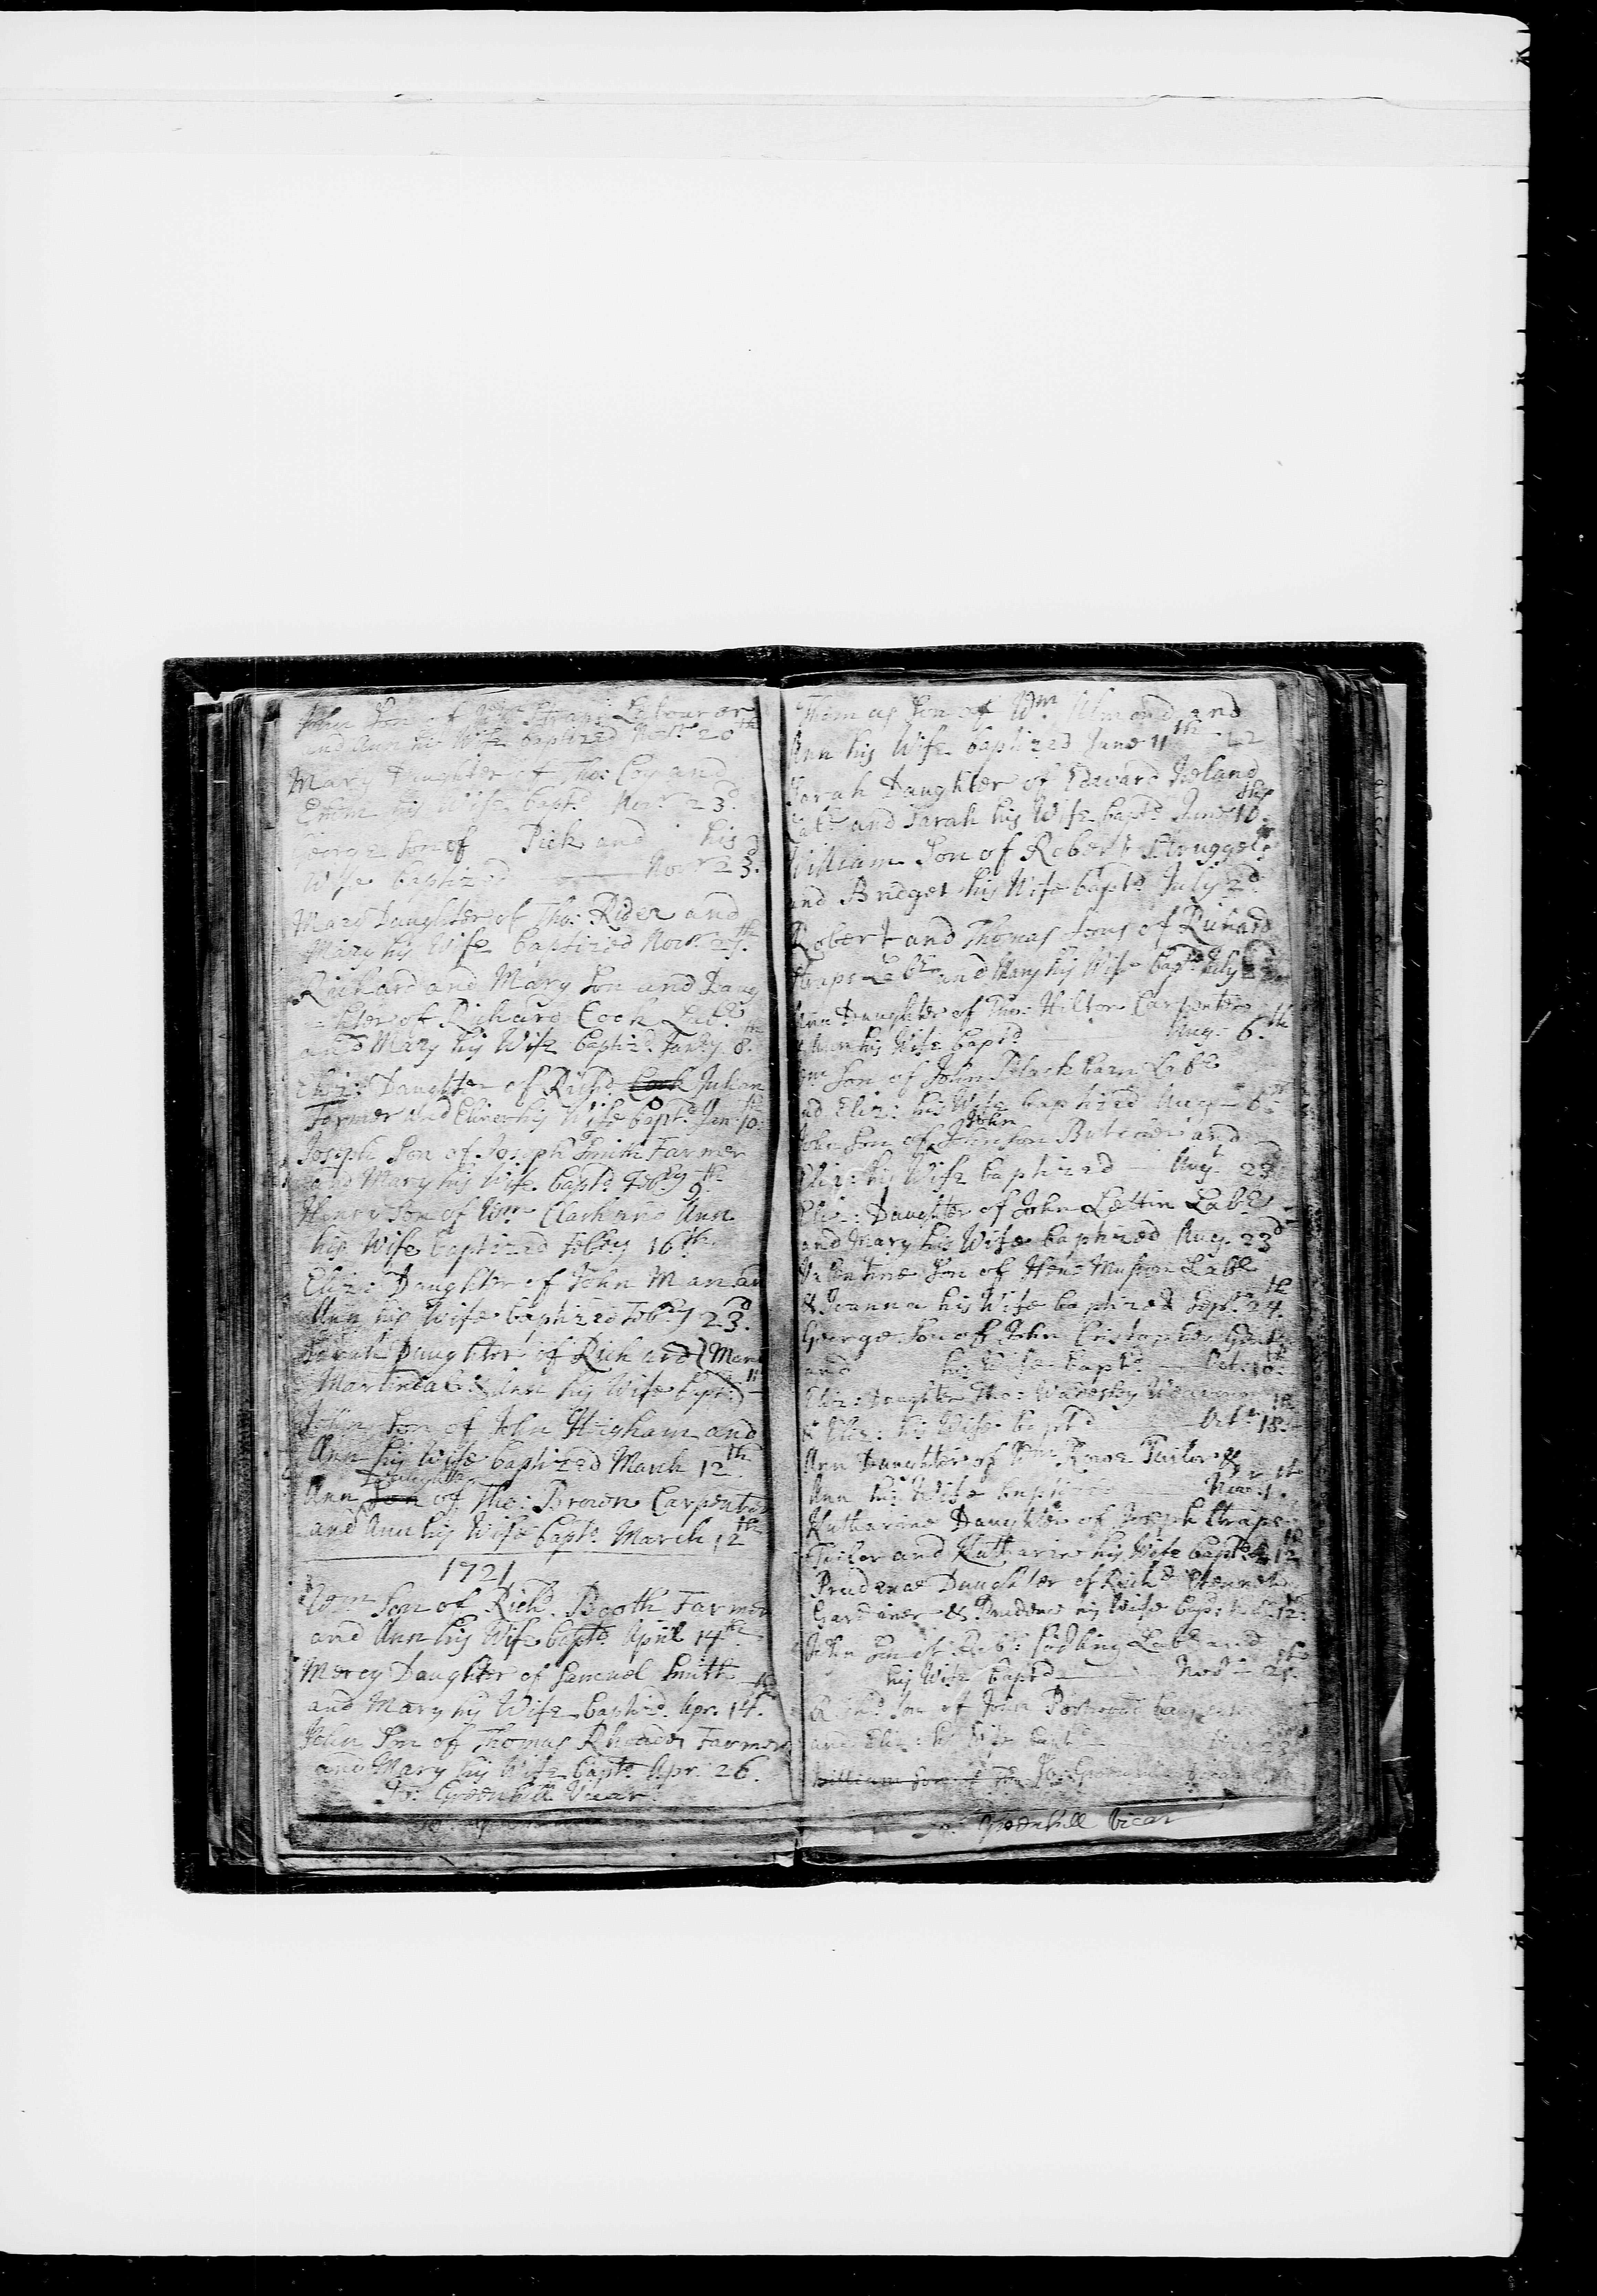 John Son of John Straps Labourer
and Ann his Wife baptized Novr. 20th
Mary Daughter of Tho: Coy and
Emm his Wife bapt'd Novr. 23d.
George Son of Pick and his
Wife baptized Novr 23d.
Mary Daughter of Tho: Rider and
Mary his Wife baptized Novr. 27th.
Richard and Mary Son and Daug
-hter of Richard Cook Labr.
and Mary his Wife baptiz'd Janry. 8th.
Eliz: Daughter of Rich'd Cook Julian
Farmer and his Wife bapt'd Jan: 10th.
Joseph Son of Joseph Smith Farmer
and Mary his Wife bapt'd Febry 9th.
Henry Son of Wm Clark and Ann
his Wife baptized Febry 16th.
Eliz: Daughter of John Man and
Ann his Wife baptized Febry 23d.
Sarah Daughter of Richard (Mar
Martindale & Ann his Wife bapt:)
John Son of John Higham and
Ann his Wife baptized March 12th
Daughter
Ann Son of Tho: Brown Carpenter
and Ann his Wife bapt'd March 12th
1721
Wm Son of Rich'd. Booth Farmer
and Ann his Wife bapt'd April 14th
Mercy Daughter of Samuel Smith
and Mary his Wife baptiz'd. Apr. 14th.
John Son of Thomas Rhoades Farmer
and Mary his Wife bapt'd Apr. 26.
Jo: Greenhill Vicar
Thomas Son of Wm Almond and
Ann his Wife baptized June 11th
Sarah Daughter of Edward Ireland
Labr and Sarah his Wife bapt'd June 18th
William Son of Robert Struggels
and Bridget his Wife bapt'd July 2d
Robert and Thomas Sons of Richard
Straps Labr and Mary his Wife bapt'd July
Ann Daughter of Tho: Hilton Carpenter
& Ann his Wife bapt'd Aug: 6th
Wm Son of John Blackbarn Labr
and Eliz: his Wife baptized Aug: 6th
John
John Son of Johnson Butcher and
Eliz: his Wife baptized Aug: 23d
Eliz: Daughter of John Lettin Labr
and Mary his Wife baptized Aug. 23d
Valentine Son of Hen: Musson Labr
& Joanna his Wife baptized Septr. 24th.
George Son of John Cristopher Gent
and his Wife bapt'd Oct: 10th.
Eliz: Daughter Tho: Wadesley
& Eliz: his Wife bapt'd Octr. 18th.
Ann Daughter of Wm. Rowe Tailor &
Ann his Wife baptized Novr. 1st.
Katharine Daughter of Joseph Straps
Tailor and Katharine his Wife bapt'd 12th
Prudence Daughter of Rich'd Stennet
Gardiner & Prudence his Wife bapt: 12th
John Son of Labr and
his Wife bapt'd Novr 21st
Rich'd. Son of John
and Eliz: his Wife bapt'd 23d
William Son of
Jo: Greenhill Vicar